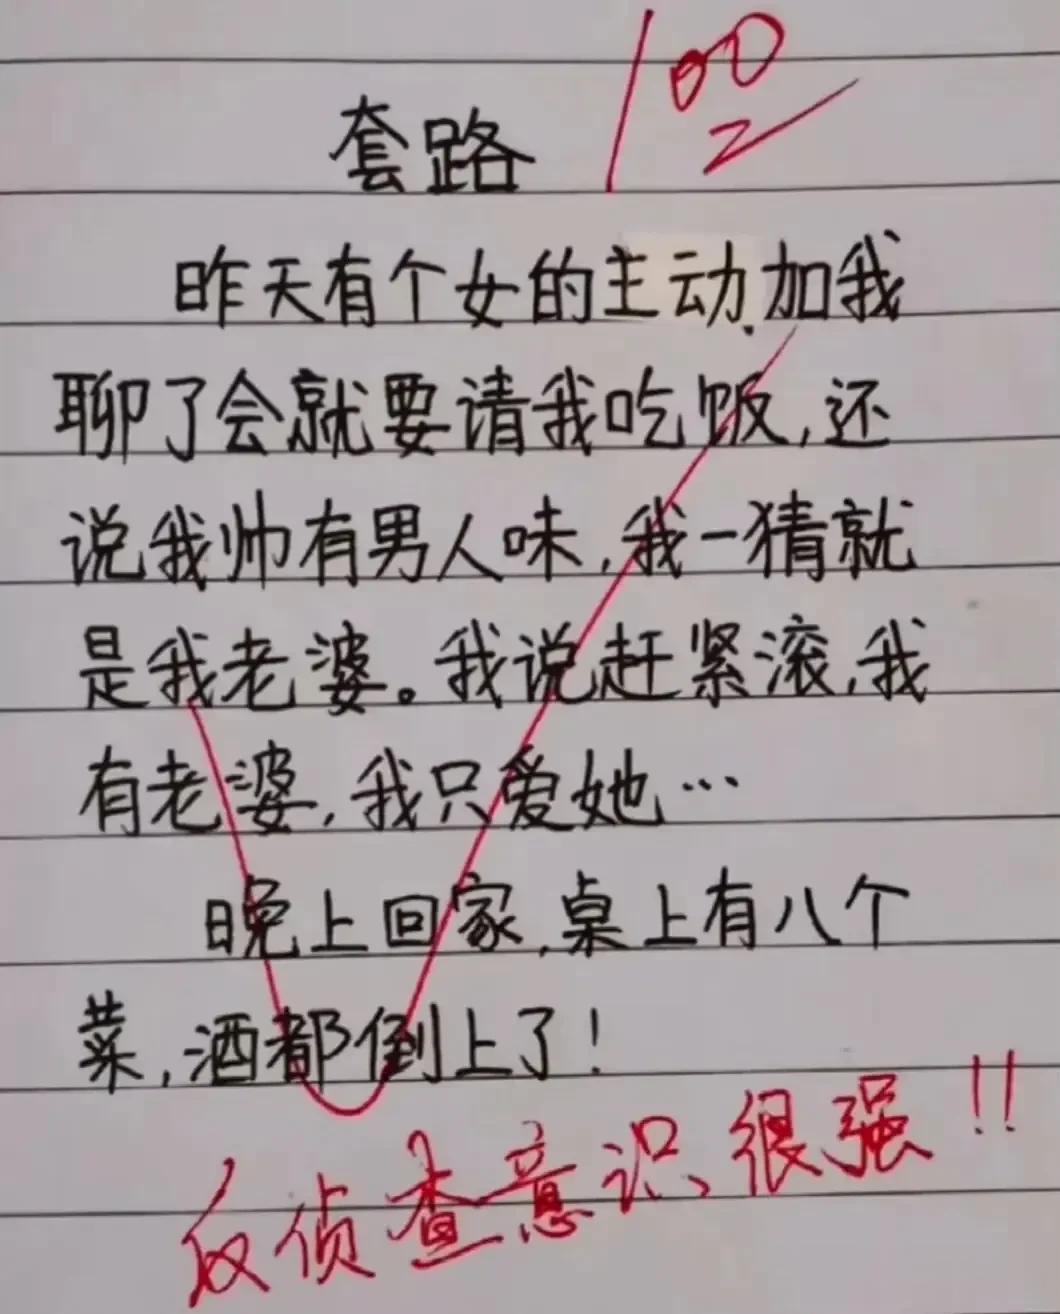 100
套路
昨天有个女的主动加我
聊了会就要请我吃饭,还
说我帅有男人味,我一猜就
是我老婆。我说赶紧滚,我
有老婆,我只爱她…
晚上回家,桌上有八个
菜,酒都倒上了!
反侦查意识很强!!